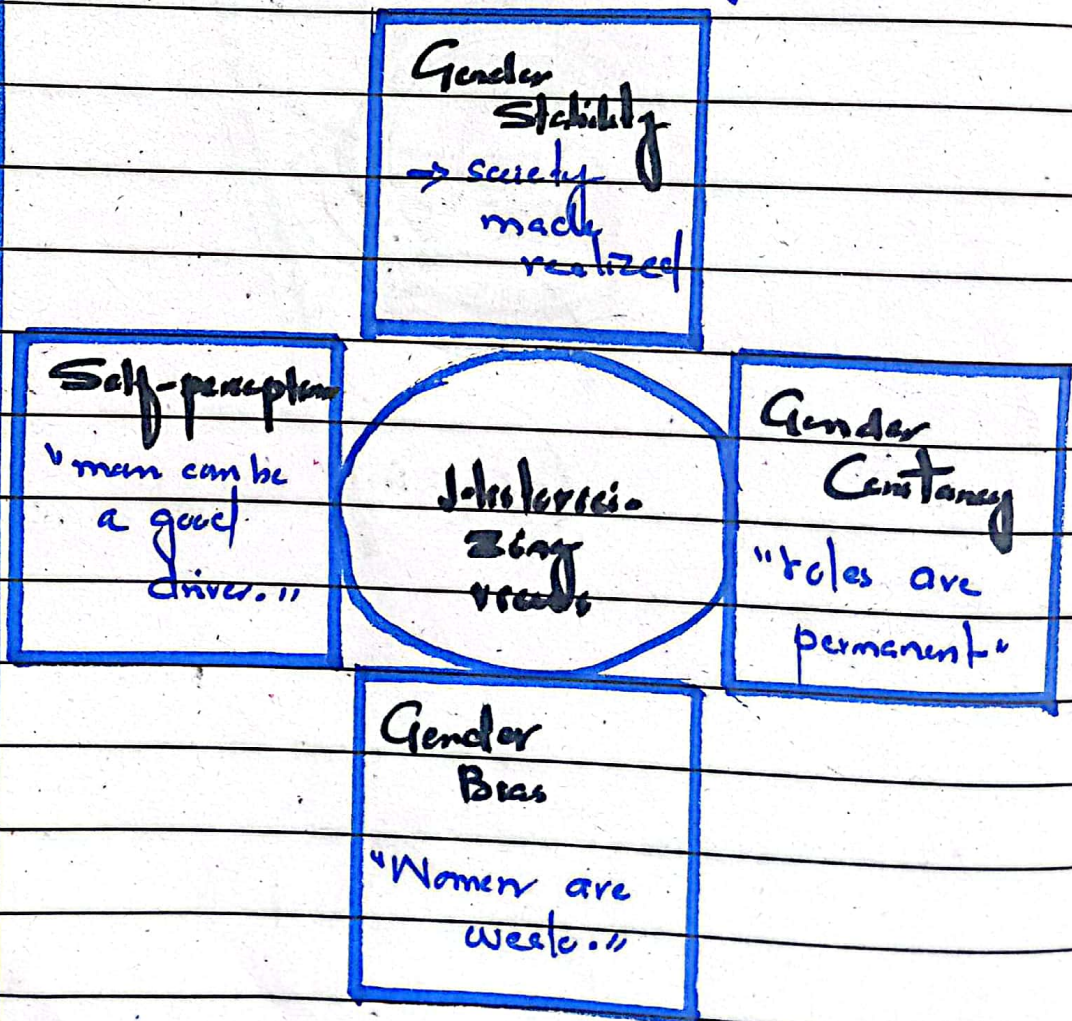 Gender
Stability
→ society
made
realized
Self-perception
"man can be
a good
driver."
zing
Gender
Constancy
"roles are
permanent"
Gender
Bias
"Women are
weak."